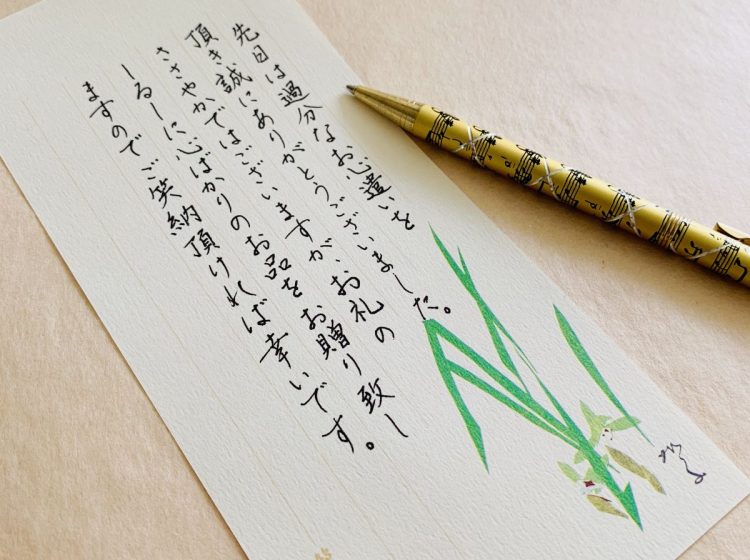 先日は過分なお心遣いを
頂き誠にありがとうございました。
ささやかではございますが、お礼の
しるしに心ばかりのお品をお贈り致し
ますのでご笑納頂ければ幸いです。